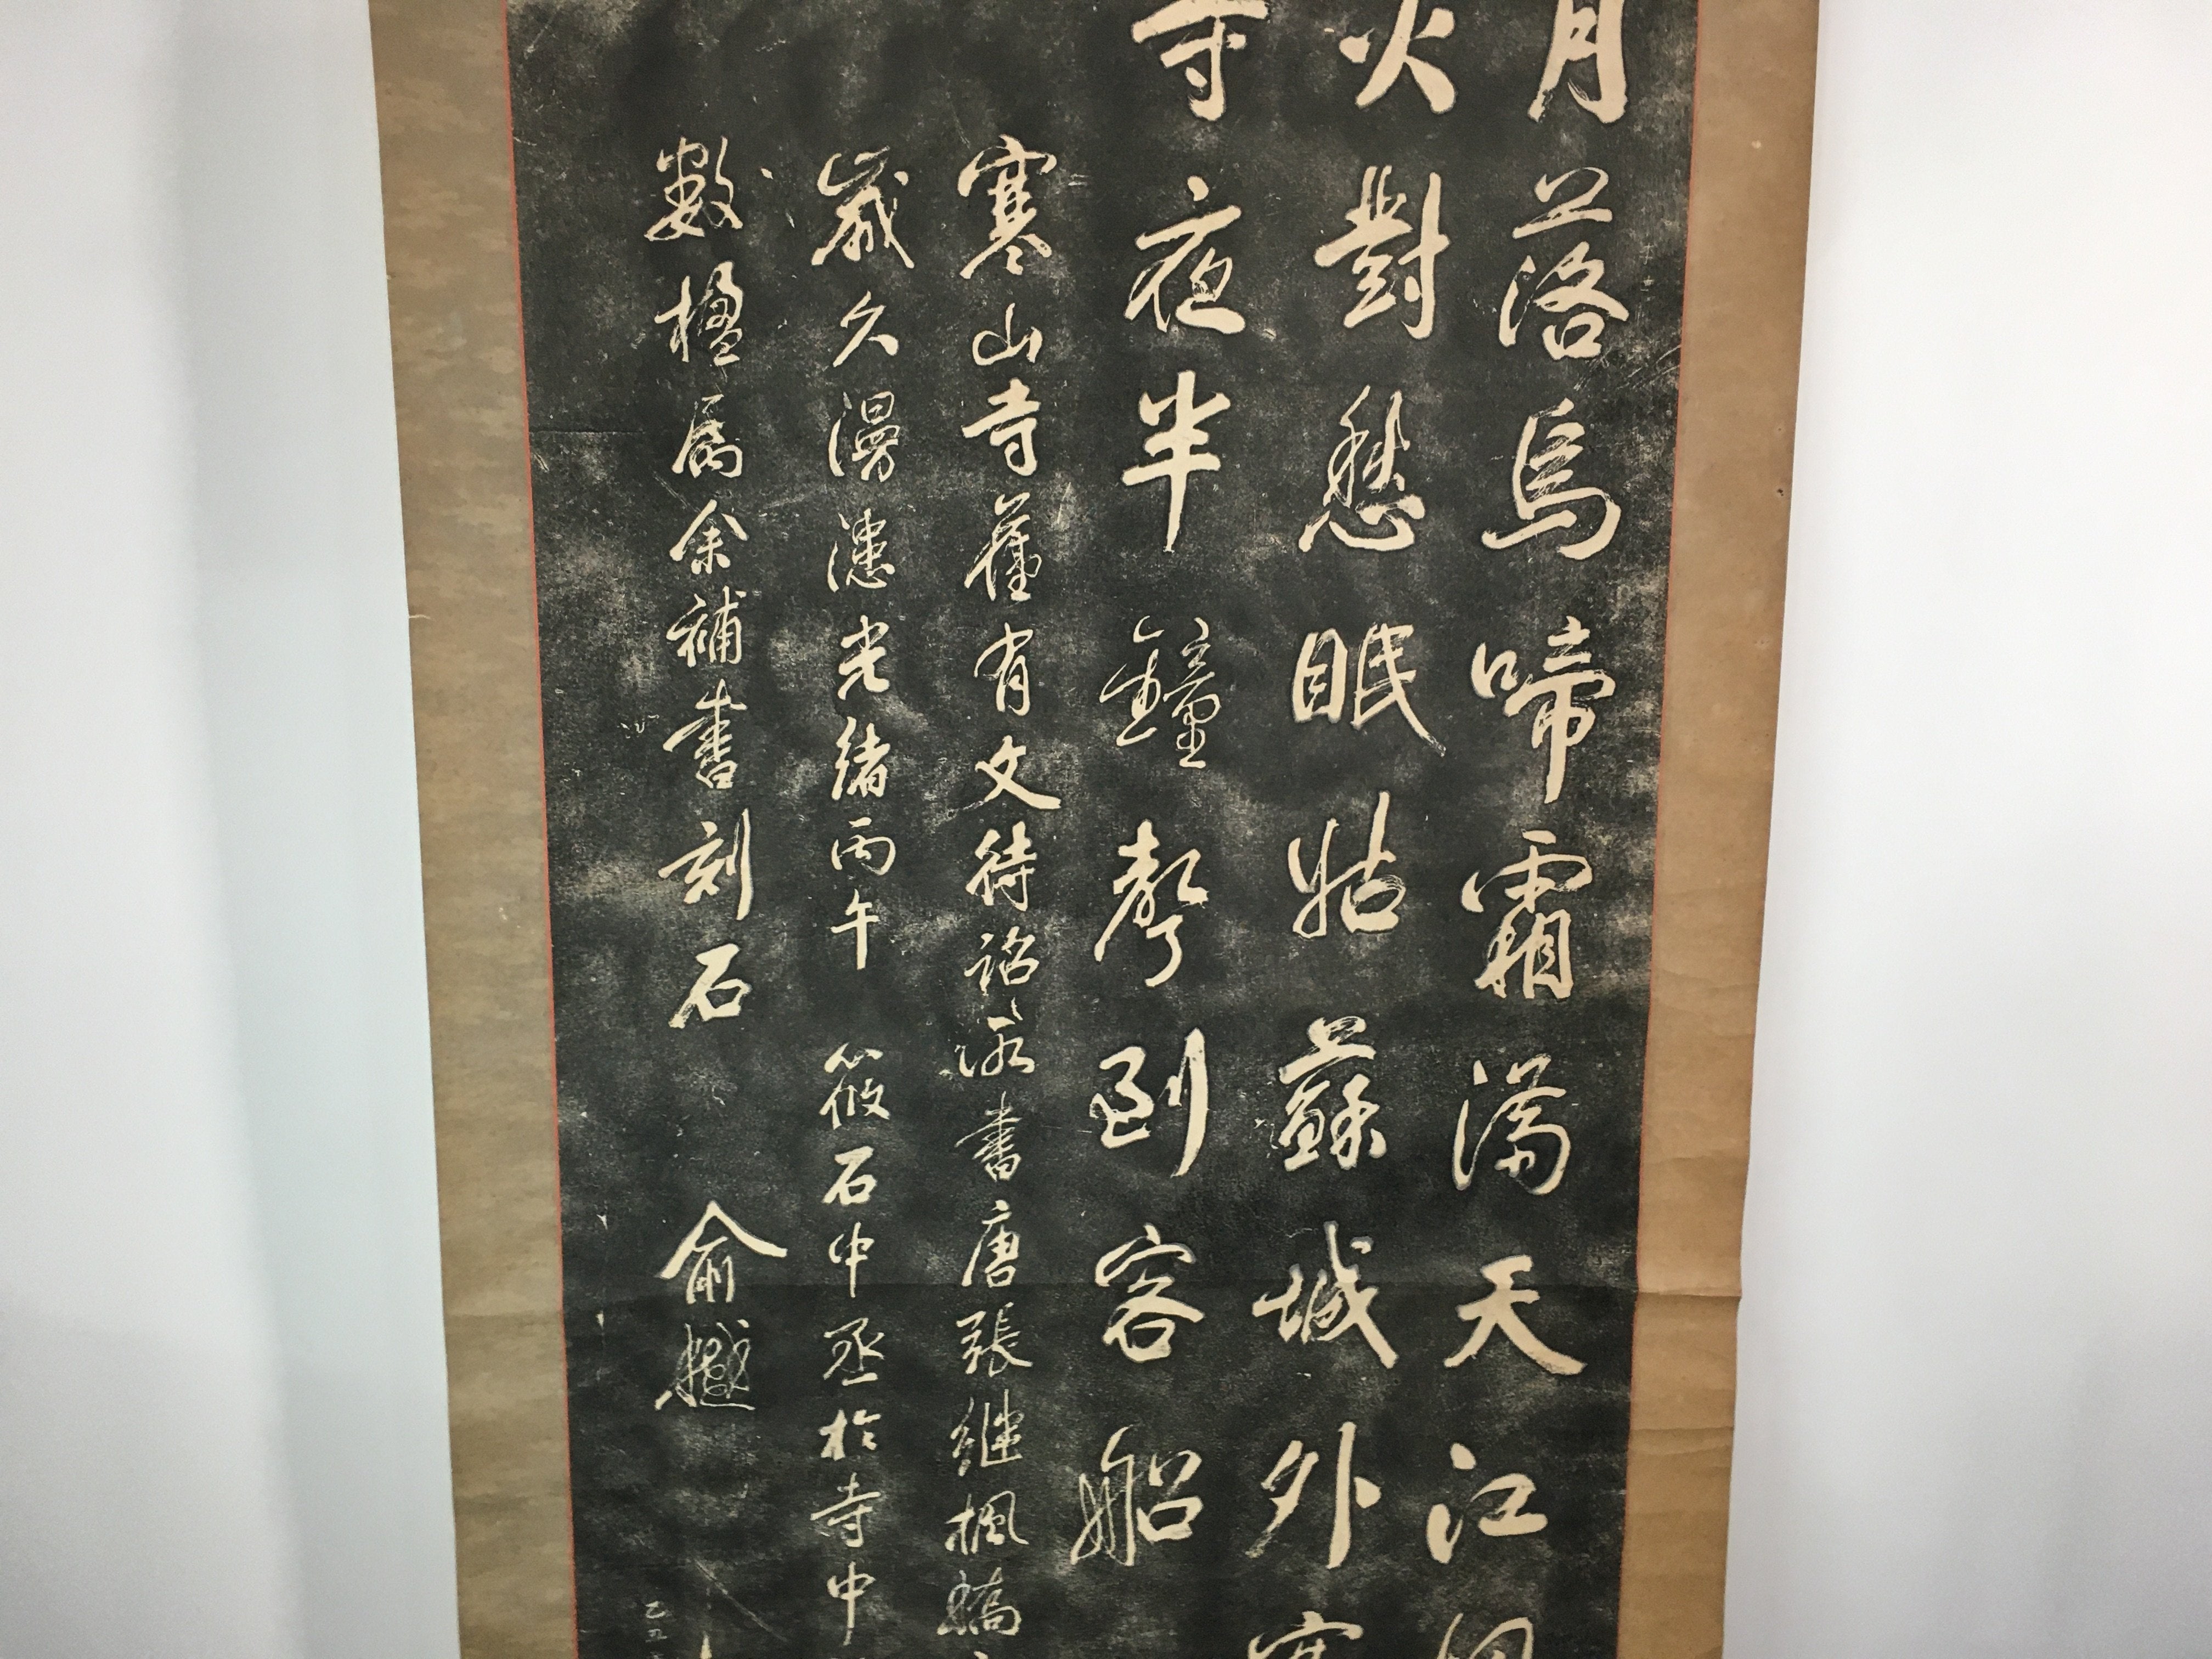 月落烏啼霜滿天江
火對愁眠姑蘇城外寒
寺夜半鐘聲到客船
寒山寺舊有文待詔所書唐張繼楓橋
歲久漫漶光緒丙午 筱石中丞於寺中
數楹屬余補書刻石 俞樾
乙丑